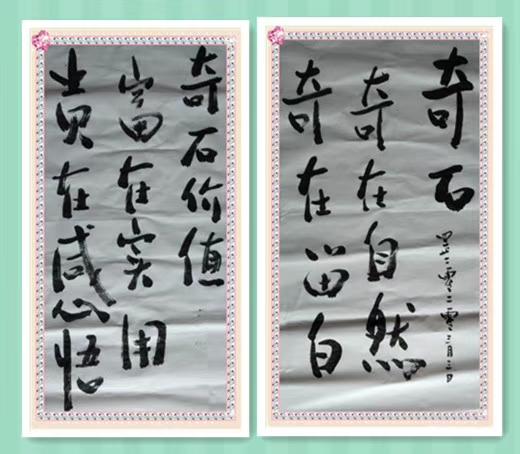 奇石
二零二二零三月三日
奇在自然
奇在留白
奇石价值
富在实用
贵在感悟